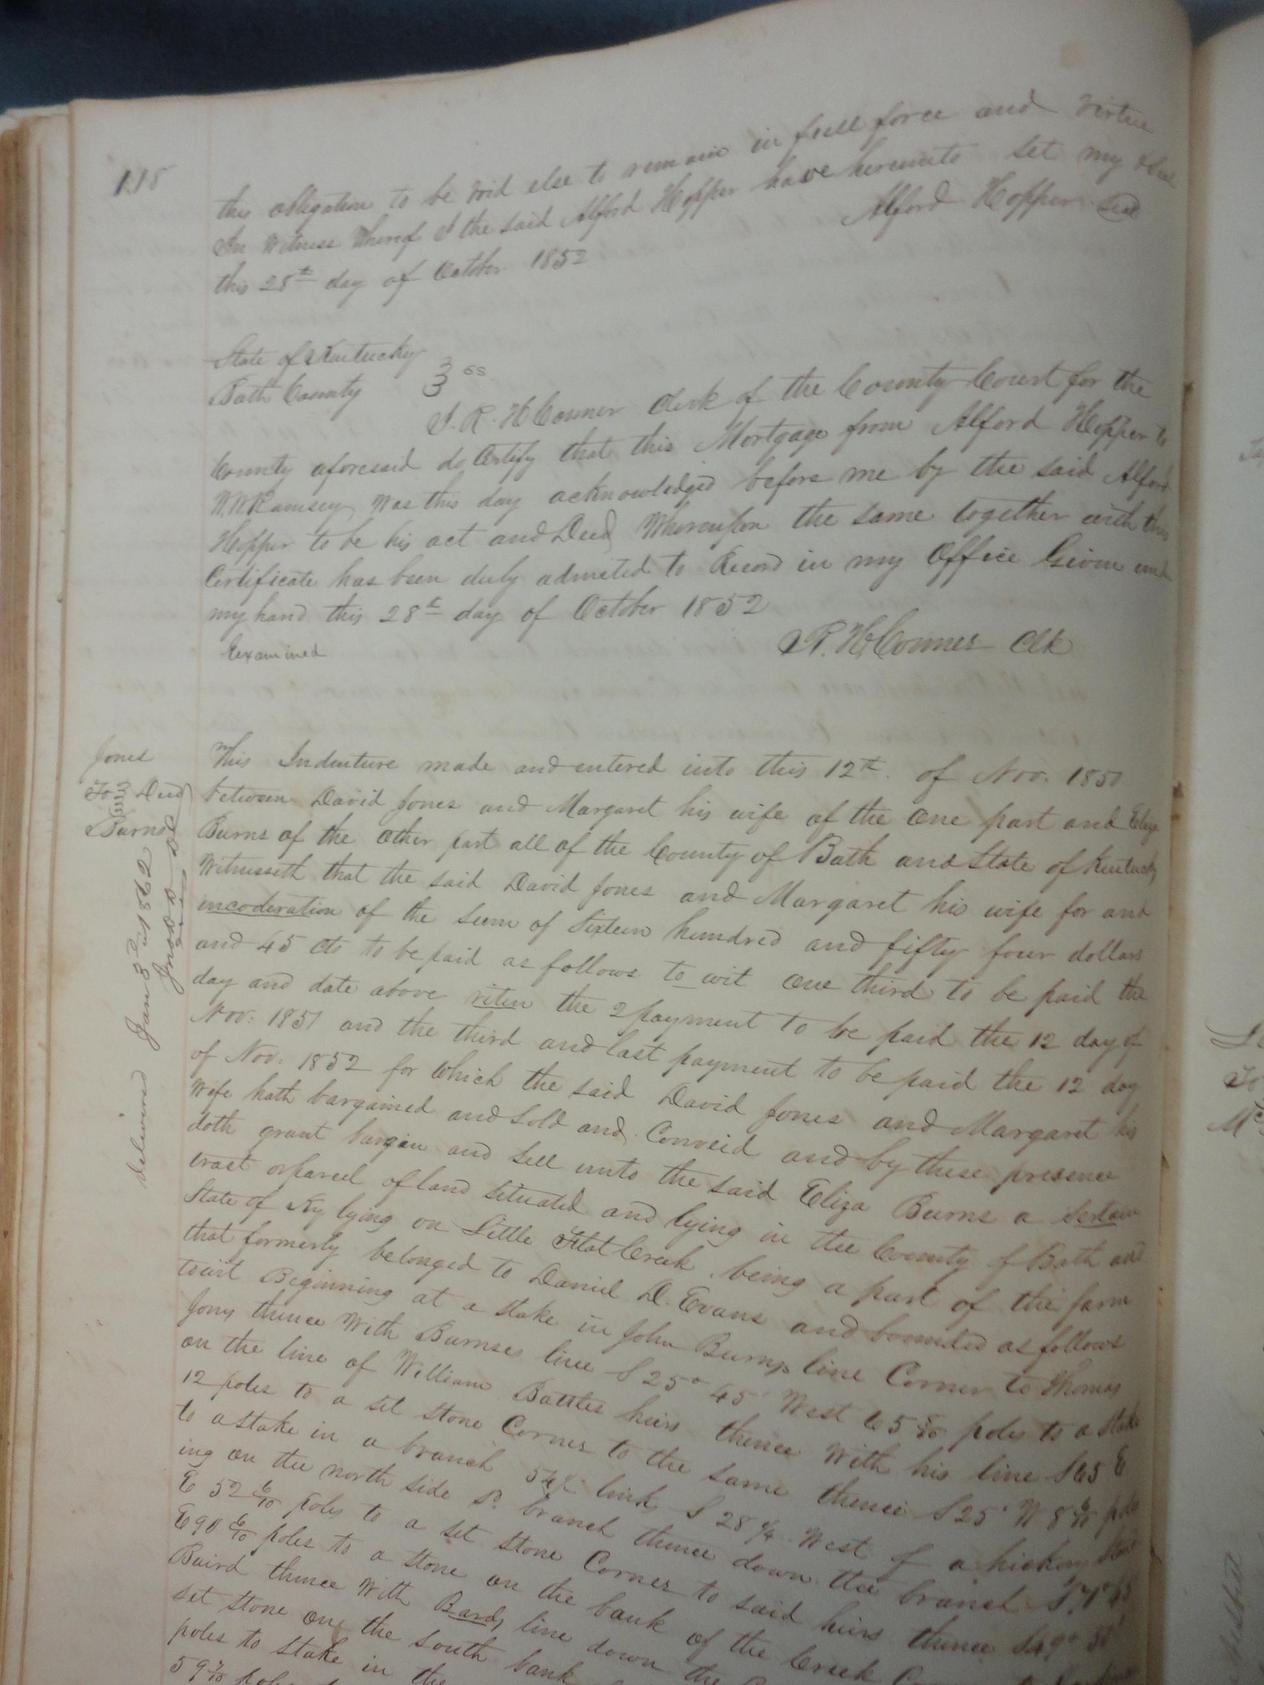 118
this obligation to be void else to remain in full force and virtue
In Witness Whereof I the said Alford Hopper have hereunto set my seal
this 28th day of October 1852
Alford Hopper Seal
State of Kentucky
Bath County ss
I. R. H. Conner Clerk of the County Court for the
County aforesaid do Certify that this Mortgage from Alford Hopper to
W.W. Ramsey, was this day acknowledged before me by the said Alford
Hopper to be his act and Deed Whereupon the same together with this
Certificate has been duly admited to Record in my Office Given und
my hand this 28th day of October 1852
R. H. Conner Clk
Examined
Jones
To Deed
Burns
Delivered Jan 3d 1862
This Indenture made and entered into this 12th. of Nov. 1850
between David Jones and Margaret his wife of the one part and Eliza
Burns of the other part all of the County of Bath and State of Kentucky
Witnesseth that the said David Jones and Margaret his wife for and
incoderation of the sum of Sixteen hundred and fifty four dollars
and 45 cts to be paid as follows to wit one third to be paid the
day and date above riten the 2 payment to be paid the 12 day of
Nov. 1851 and the third and last payment to be paid the 12 day
of Nov. 1852 for which the said David Jones and Margaret his
Wife hath bargained and sold and Conveid and by these presence
doth grant bargain and sell unto the said Eliza Burns a sertain
tract or parcel of land situated and lying in the County of Bath and
State of Ky lying on Little Flat Creek being a part of the farm
that formerly belonged to Daniel D. Evans and bounded as follows
towit Beginning at a stake in John Burns line Corner to Thomas
Jones thence With Burnses line S 25° 45' West 65 poles to a stake
on the line of William Battles heirs thence With his line S 65 E
12 poles to a set stone Corner to the same thence S 25° W 8 6/10 poles
to a stake in a branch link S 28 1/4 West of a hickory
ing on the north side branch thence down the branch S 71° 45
E 52 6/10 poles to a set stone Corner to said heirs thence S 49° 30'
E 90 6/10 poles to a stone on the bank of the Creek Corner to
Baird thence With Bards line down the
set stone one the south bank
poles to stake in the
poles